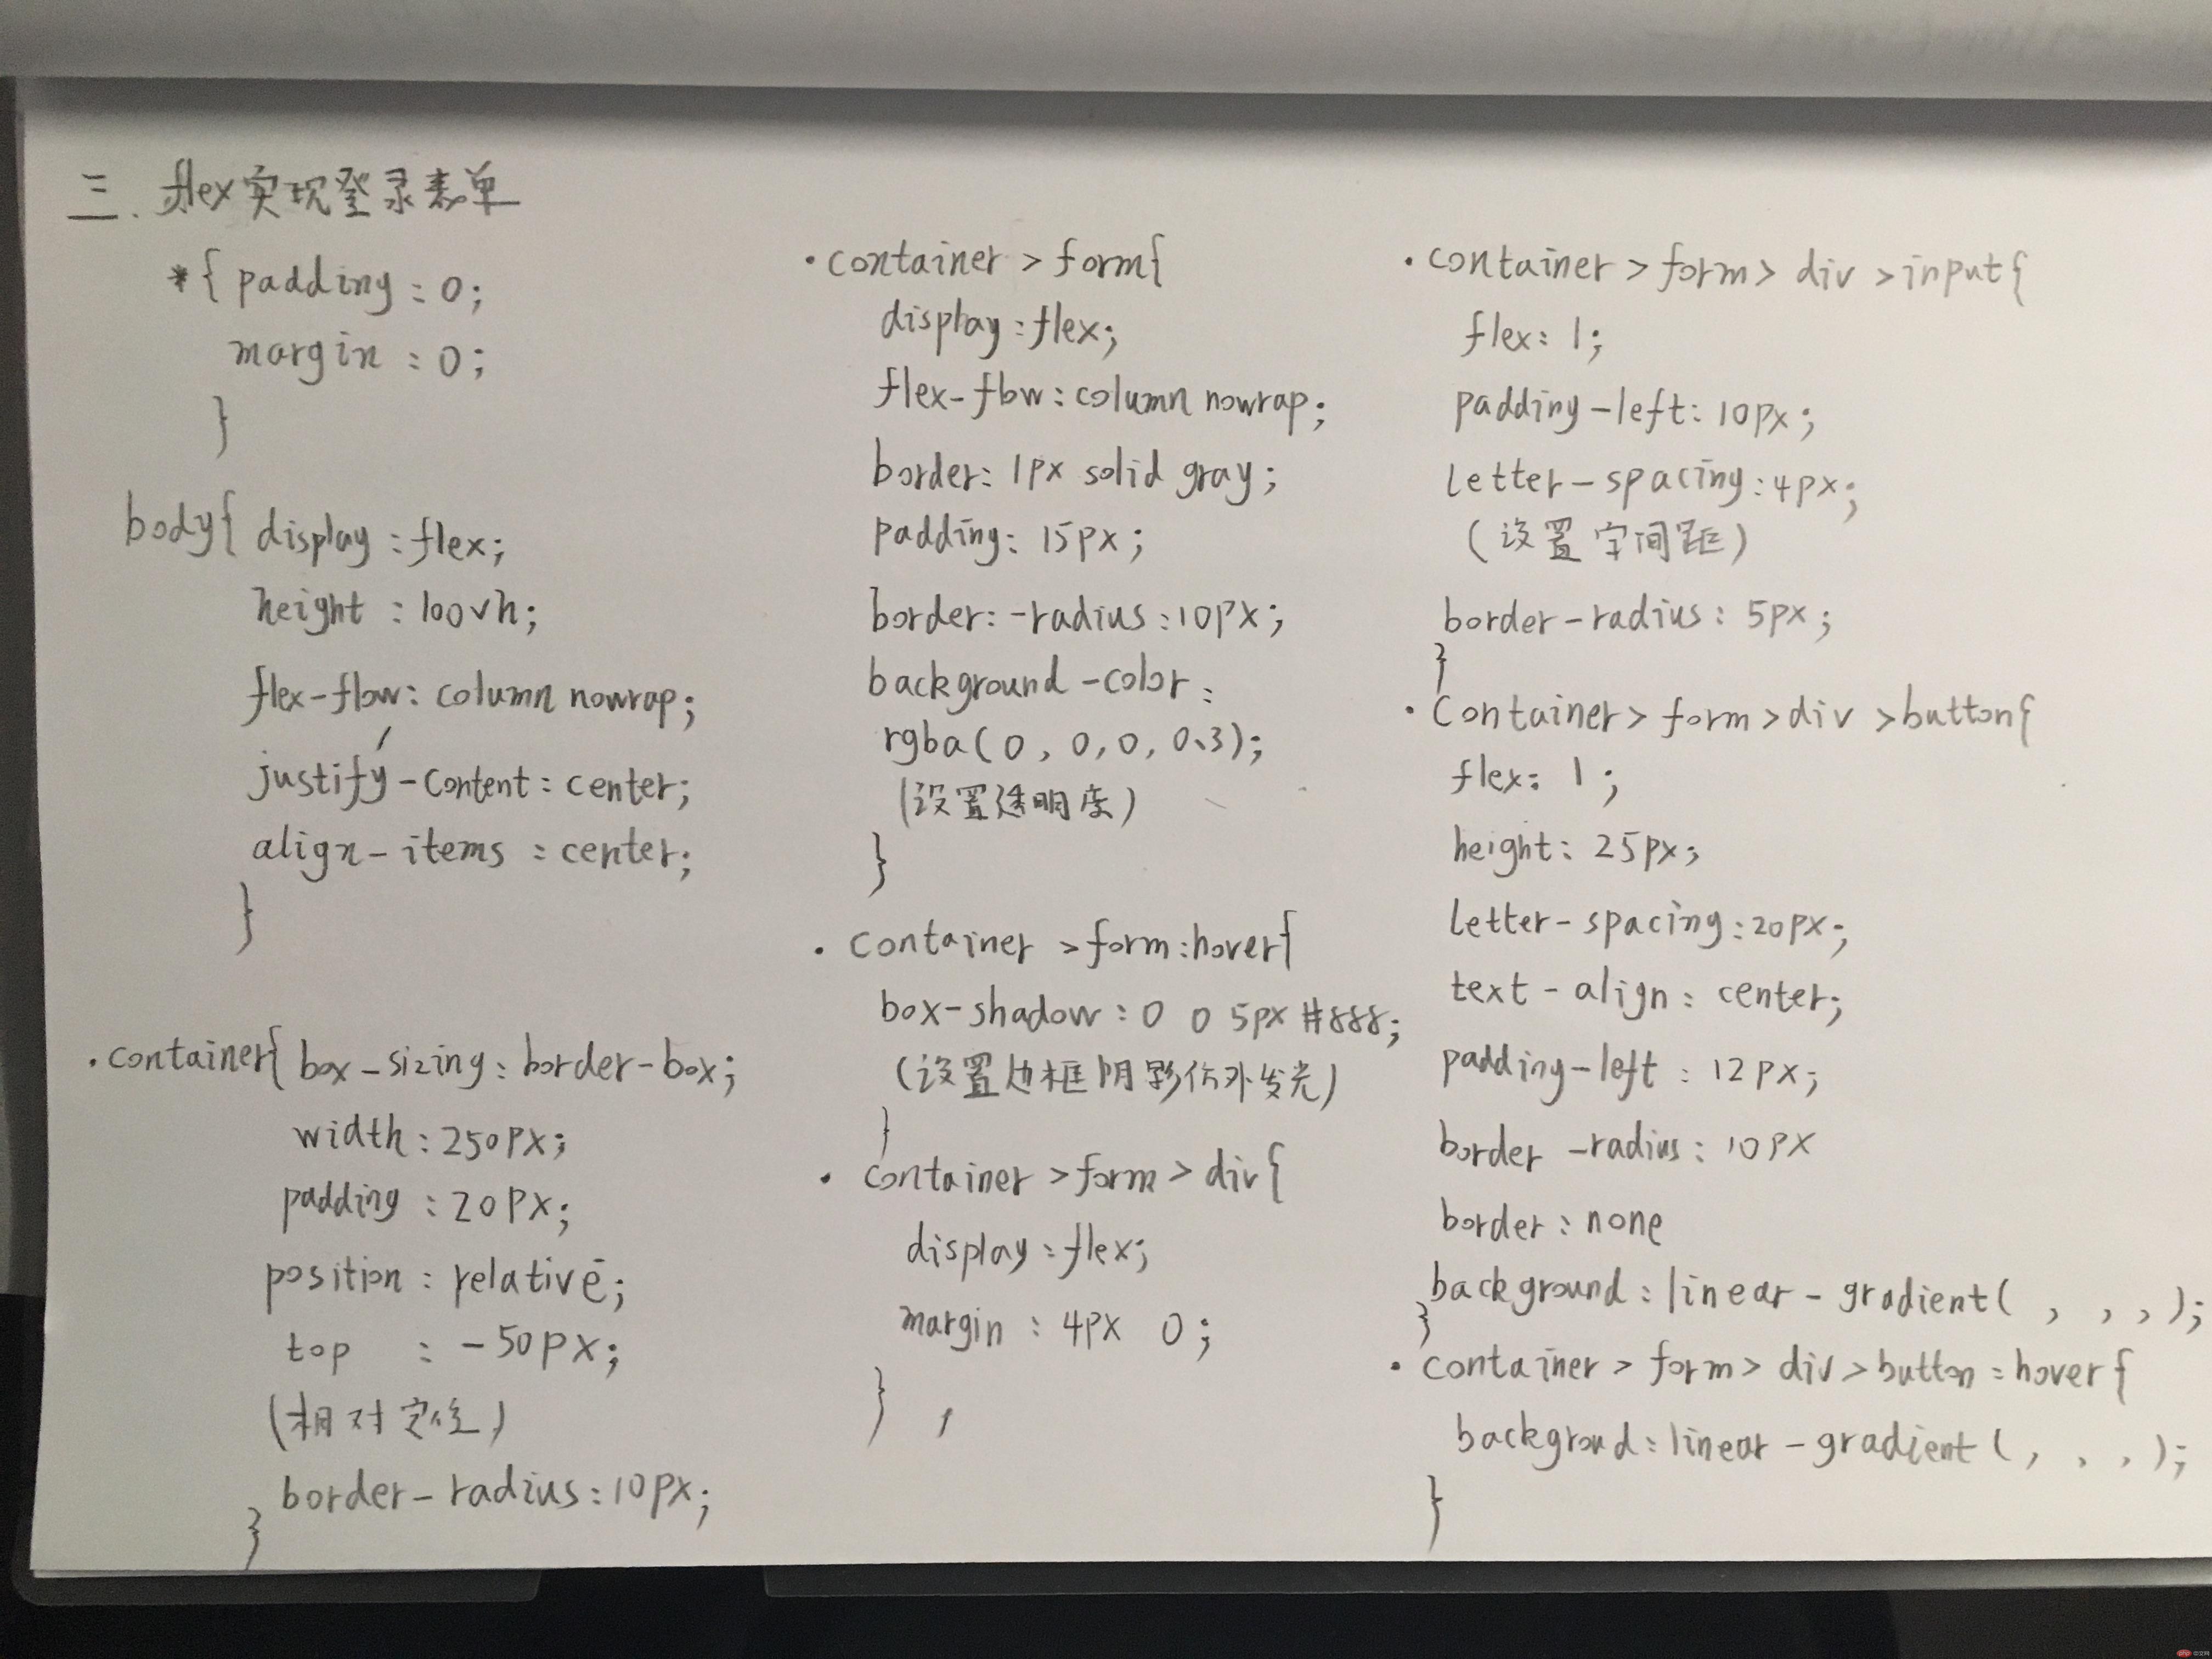 三. flex实现登录表单
*{ padding : 0;
margin : 0;
}
body{ display : flex;
height : 100vh;
flex-flow: column nowrap;
justify-content: center;
align-items : center;
}
.container{ box-sizing: border-box;
width: 250px;
padding : 20px;
position : relative;
top : -50px;
(相对定位)
border-radius: 10px;
}
.container > form{
display : flex;
flex-flow : column nowrap;
border: 1px solid gray;
padding: 15px;
border: -radius : 10px;
background-color :
rgba( 0 , 0, 0, 0.3);
(设置透明度)
}
. container > form:hover{
box-shadow : 0 0 5px #888;
(设置边框阴影仿外发光)
}
. container > form > div{
display : flex;
margin : 4px 0 ;
}
.container > form > div > input{
flex: 1;
padding-left: 10px;
letter-spacing : 4px;
(设置字间距)
border-radius: 5px;
}
.container > form > div > button{
flex: 1;
height: 25px;
letter-spacing: 20px;
text-align: center;
padding-left : 12px;
border -radius: 10px
border : none
background : linear-gradient( , , , );
}
. container > form > div > button : hover{
backgroud : linear-gradient( , , , );
}